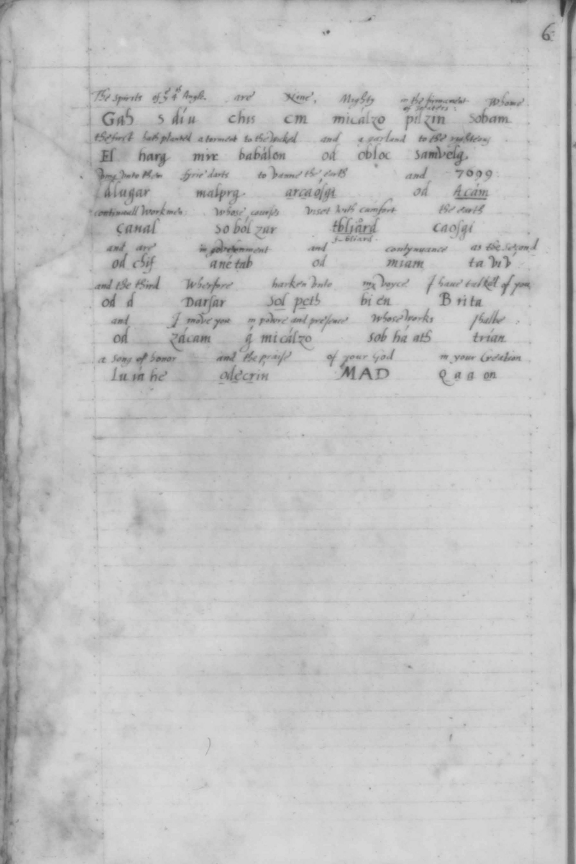 6
The spirits of yͤ 4ᵗ Angle are Nine, Mighty in the firmament of waters: Whome
Gah s díu chis em micalzo pilzin sobam
the first hath planted a torment to the wicked and a garland to the righteous
El harg mir babálon od obloc samvelg
giving unto them fyrie darts to vanne the earth and 7699
dlugar malprg arcaósgi od Acám
continuall Workmen whose courses viset with comfort the earth
canal so ból zar tbliárd caosgi
f-bliard
and are in government and contynuance as the second
od chif anétab od miam ta viv
and the third Wherfore harken unto my voyce I have talked of you
od d Darsar sol peth bi én B ri ta
and I move you in powre and presence Whose works shalbe
od zácam g micálzo sob há ath trían
a song of honor and the praise of your God in your Creation
Lu ia he odecrin MAD Q a a on